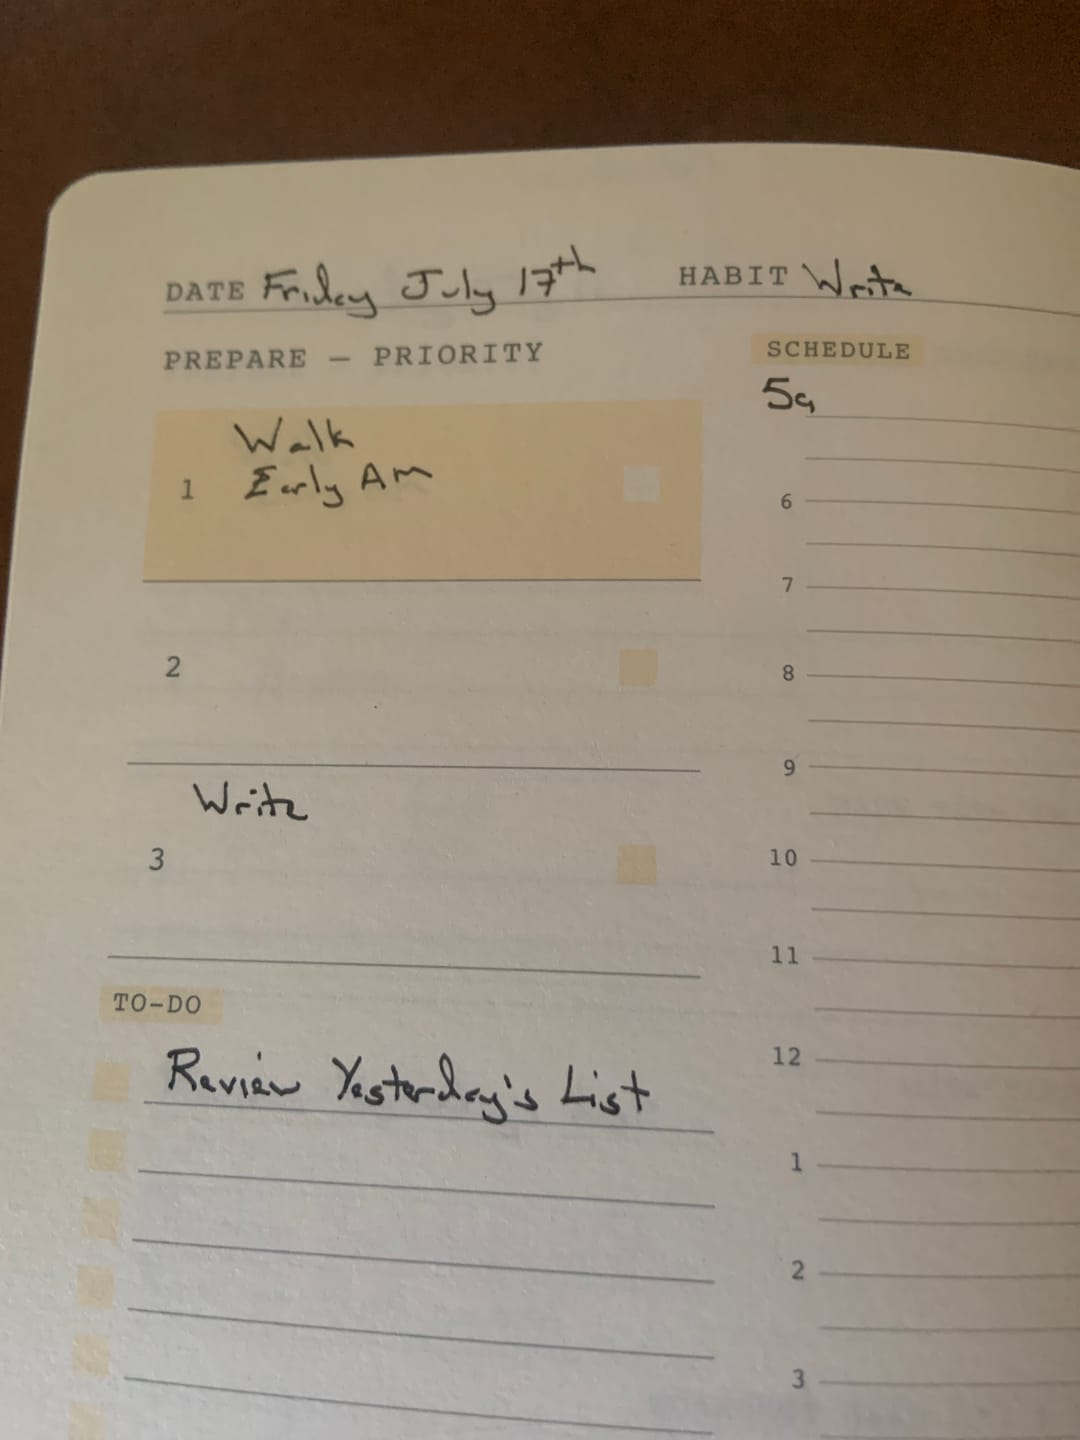 DATE Friday July 17th HABIT Write
PREPARE — PRIORITY
Walk
1 Early AM
2
Write
3
TO-DO
Review Yesterday's List
SCHEDULE
5a
6
7
8
9
10
11
12
1
2
3